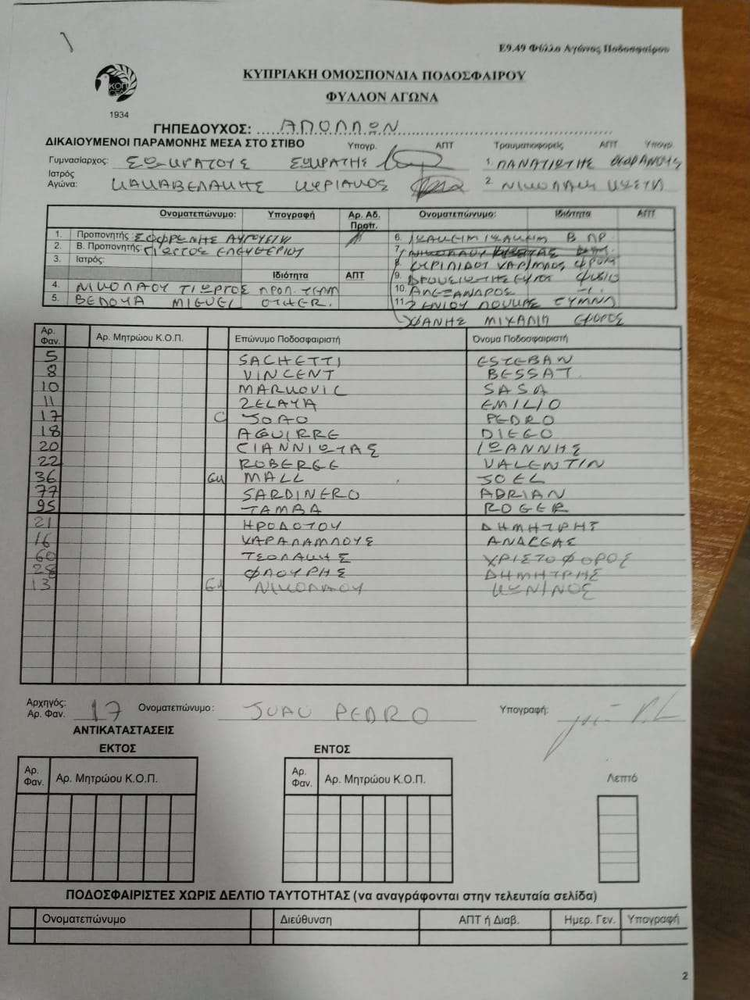 Ε9.49 Φύλλο Αγώνος Ποδοσφαίρου
ΚΟΠ
1934
ΚΥΠΡΙΑΚΗ ΟΜΟΣΠΟΝΔΙΑ ΠΟΔΟΣΦΑΙΡΟΥ
ΦΥΛΛΟΝ ΑΓΩΝΑ
ΓΗΠΕΔΟΥΧΟΣ: ΑΠΟΛΛΩΝ
ΔΙΚΑΙΟΥΜΕΝΟΙ ΠΑΡΑΜΟΝΗΣ ΜΕΣΑ ΣΤΟ ΣΤΙΒΟ Υπογρ. ΑΠΤ Τραυματιοφορείς ΑΠΤ Υπογρ
Γυμνασίαρχος: ΣΩΚΡΑΤΟΥΣ ΣΩΚΡΑΤΗΣ 1. ΠΑΝΑΓΙΩΤΗΣ
Ιατρός
Αγώνα: ΚΑΚΑΒΕΛΑΚΗΣ ΚΥΡΙΑΚΟΣ 2. ΝΙΚΟΛΑΟΥ
Ονοματεπώνυμο: Υπογραφή Αρ. Αδ. Προπ. Ονοματεπώνυμο: Ιδιότητα ΑΠΤ
1. Προπονητής ΣΟΦΡΩΝΗΣ ΑΥΓΟΥΣΤΗ 6. ΙΩΑΚΕΙΜ ΙΩΑΚΕΙΜ Β ΠΡ.
2. Β. Προπονητής ΓΙΩΡΓΟΣ ΕΛΕΥΘΕΡΙΟΥ 7.
3. Ιατρός: 8. ΧΑΡΙΛΑΟΣ
Ιδιότητα ΑΠΤ 9. ΦΥΣΙΟ
4. ΝΙΚΟΛΑΟΥ ΓΙΩΡΓΟΣ ΠΡΟΠ. ΤΕΡΜ 10. ΑΛΕΞΑΝΔΡΟΣ
5. ΒΕΔΟΥΑ MIGUEL OTHER. 11.
ΜΙΧΑΛΗΣ ΕΦΟΡΟΣ
Αρ. Φαν. Αρ. Μητρώου Κ.Ο.Π. Επώνυμο Ποδοσφαιριστή Όνομα Ποδοσφαιριστή
5 SACHETTI ESTEBAN
8 VINCENT BESSAT
10 MARKOVIC SASA
11 ZELAYA EMILIO
17 C JOAO PEDRO
18 AGUIRRE DIEGO
20 ΓΙΑΝΝΙΩΤΑΣ ΙΩΑΝΝΗΣ
22 ROBERGE VALENTIN
36 GK MALL JOEL
77 SARDINERO ADRIAN
95 TAMBA ROGER
21 ΗΡΟΔΟΤΟΥ ΔΗΜΗΤΡΗΣ
16 ΧΑΡΑΛΑΜΠΟΥΣ ΑΝΔΡΕΑΣ
60 ΤΣΟΛΑΚΗΣ ΧΡΙΣΤΟΦΟΡΟΣ
28 ΦΛΟΥΡΗΣ ΔΗΜΗΤΡΗΣ
13 GK ΝΙΚΟΛΑΟΥ ΚΩΝ/ΝΟΣ
Αρχηγός:
Αρ. Φαν. 17 Ονοματεπώνυμο: JOAO PEDRO Υπογραφή:
ΑΝΤΙΚΑΤΑΣΤΑΣΕΙΣ
ΕΚΤΟΣ ΕΝΤΟΣ
Αρ. Φαν. Αρ. Μητρώου Κ.Ο.Π. Αρ. Φαν. Αρ. Μητρώου Κ.Ο.Π. Λεπτό
ΠΟΔΟΣΦΑΙΡΙΣΤΕΣ ΧΩΡΙΣ ΔΕΛΤΙΟ ΤΑΥΤΟΤΗΤΑΣ (να αναγράφονται στην τελευταία σελίδα)
Ονοματεπώνυμο Διεύθυνση ΑΠΤ ή Διαβ. Ημερ. Γεν. Υπογραφή
2